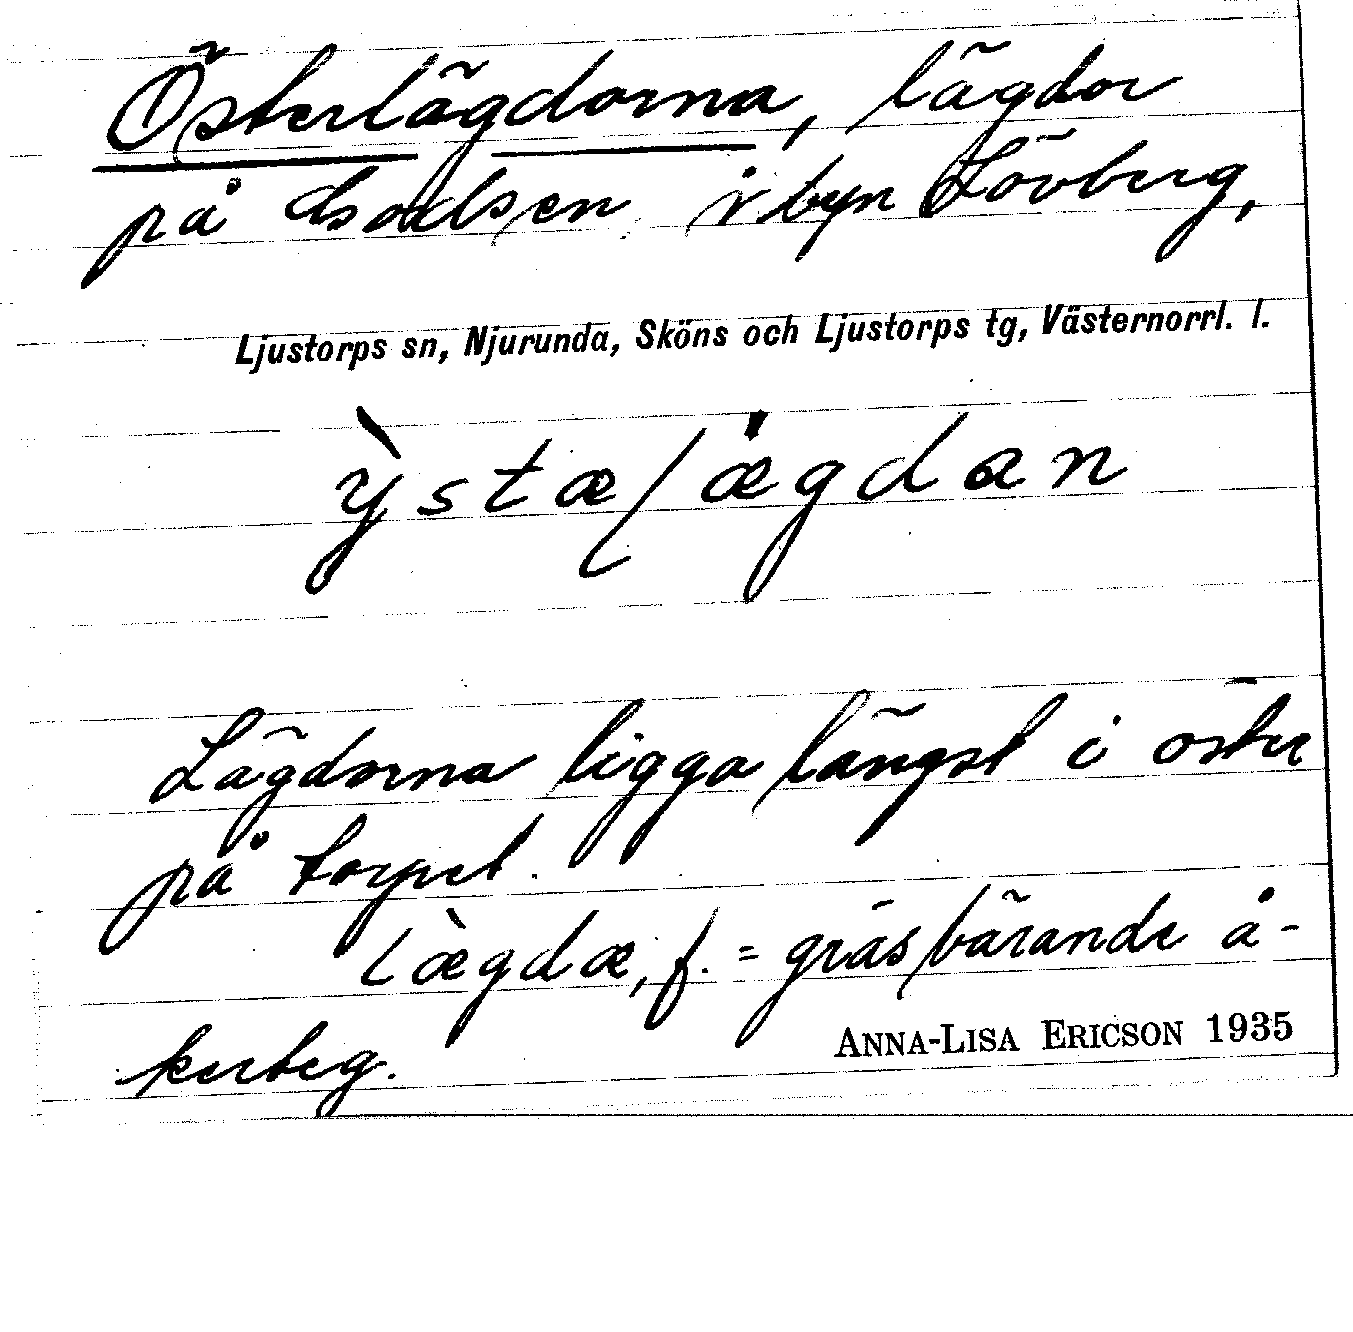 Österlägdorna, lägdor
på i byn Lövberg,
Ljustorps sn, Njurunda, Sköns och Ljustorps tg, Västernorrl. l.
ỳstæɭægdan
Lägdorna ligga längst i öster
på torpet.
lægdæ, f. = gräsbärande å-
kerteg.
ANNA-LISA ERICSON 1935